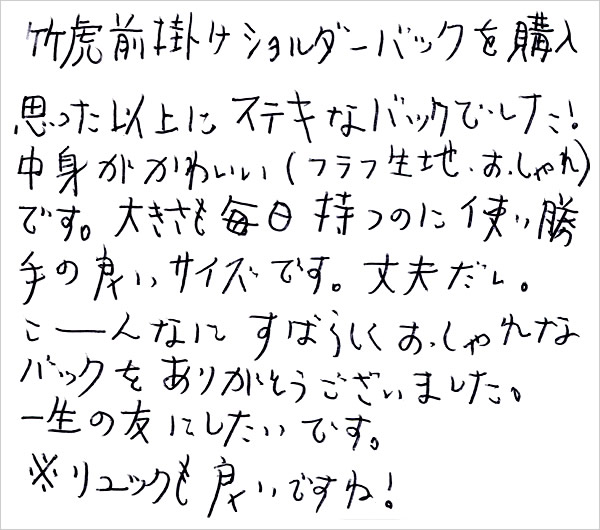 竹虎前掛けショルダーバックを購入
思った以上にステキなバックでした!
中身がかわいい(フラフ生地、おしゃれ)
です。大きさも毎日持つのに使い勝
手の良いサイズです。丈夫だし。
こーんなにすばらしくおしゃれな
バックをありがとうございました。
一生の友にしたいです。
※リュックも良いですね!